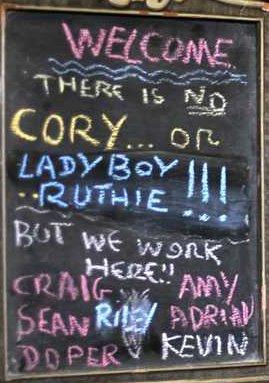 WELCOME
THERE IS NO
CORY... OR
LADYBOY
..RUTHIE!!!
BUT WE WORK
HERE!!
CRAIG AMY
SEAN RILEY ADRIAN
DOPER KEVIN